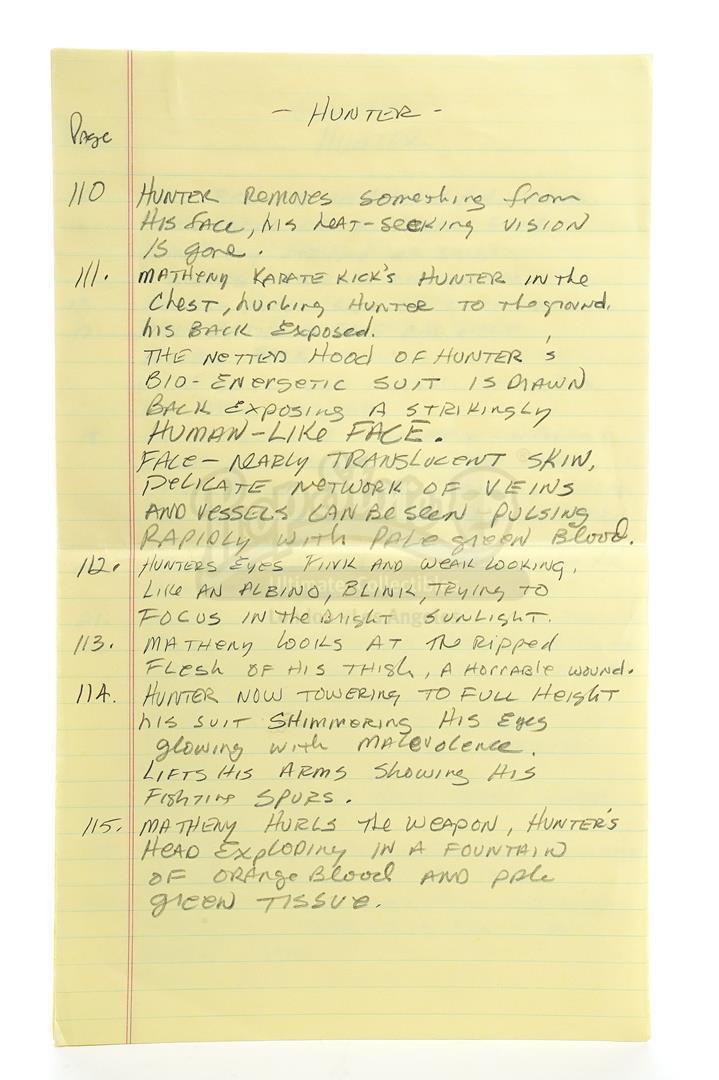 - HUNTER -
Page
110 HUNTER REMOVES something from
HIS FACE, his heat-seeking VISION
IS gone.
111. MATHENY KARATE KICK'S HUNTER IN the
Chest, hurling HUNTER TO the ground.
his BACK Exposed.
THE NETTED HOOD OF HUNTER'S
BIO-ENERGETIC SUIT IS DRAWN
BACK EXPOSING A STRIKINGLY
HUMAN-LIKE FACE.
FACE - NEARLY TRANSLUCENT SKIN,
DELICATE NETWORK OF VEINS
AND VESSELS CAN BE SEEN PULSING
RAPIDLY with Pale green Blood.
112. HUNTERS EYES PINK AND WEAK LOOKING,
LIKE AN ALBINO, BLINK, TRYING TO
FOCUS IN the BRIGHT SUNLIGHT.
113. MATHENY LOOKS AT THE RIPPED
FLESH OF HIS THIGH, A HORRABLE WOUND.
114. HUNTER NOW TOWERING TO FULL HEIGHT
his SUIT SHIMMERING HIS EYES
glowing with MALEVOLENCE.
LIFTS HIS ARMS Showing HIS
FIGHTING SPURS.
115. MATHENY HURLS the WEAPON, HUNTER'S
HEAD EXPLODING IN A FOUNTAIN
OF ORANGE BLOOD AND pale
green TISSUE.